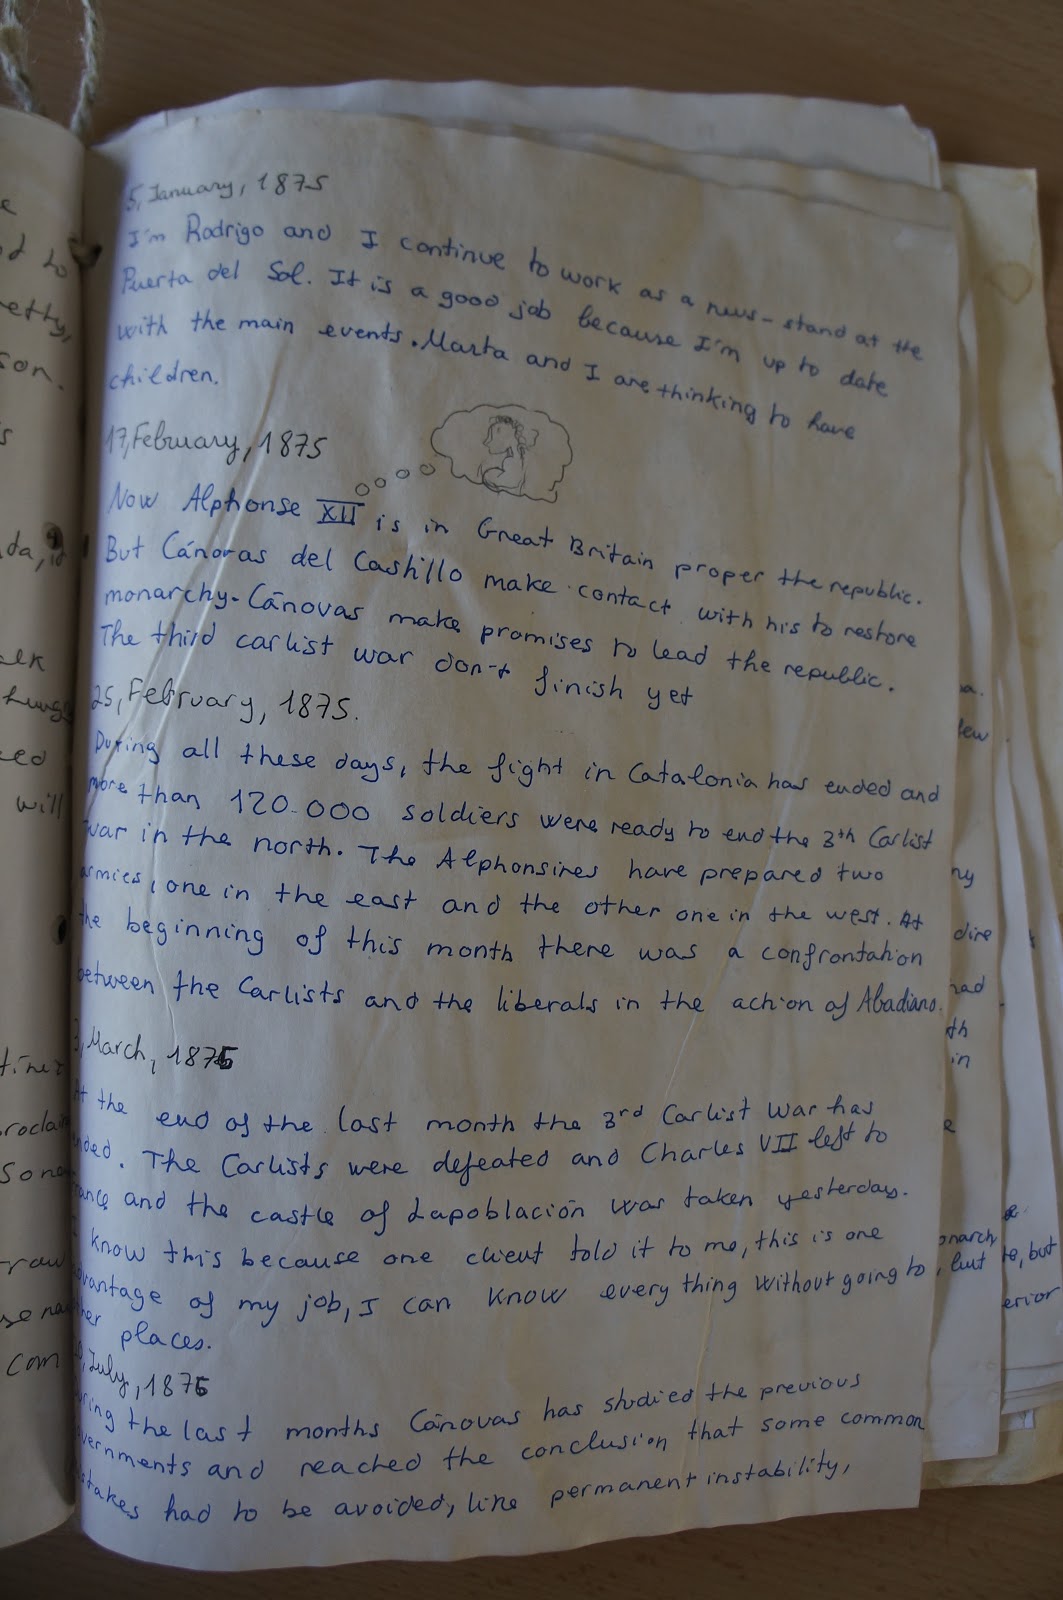 5, January, 1875
I'm Rodrigo and I continue to work as a news-stand at the
Puerta del Sol. It is a good job because I'm up to date
with the main events. Marta and I are thinking to have
children.
17, February, 1875
Now Alphonse XII is in Great Britain proper the republic.
But Cánovas del Castillo make contact with his to restore
monarchy. Cánovas make promises to lead the republic.
The third carlist war don't finish yet
25, February, 1875.
During all these days, the fight in Catalonia has ended and
more than 120.000 soldiers were ready to end the 3th Carlist
war in the north. The Alphonsires have prepared two
armies, one in the east and the other one in the west. At
the beginning of this month there was a confrontation
between the Carlists and the liberals in the action of Abadiano.
3, March, 1876
At the end of the last month the 3rd Carlist War has
ended. The Carlists were defeated and Charles VII left to
France and the castle of Lapoblación was taken yesterday.
I know this because one client told it to me, this is one
advantage of my job, I can know every thing without going to
other places.
July, 1876
During the last months Cánovas has studied the previous
governments and reached the conclusion that some common
mistakes had to be avoided, like permanent instability,